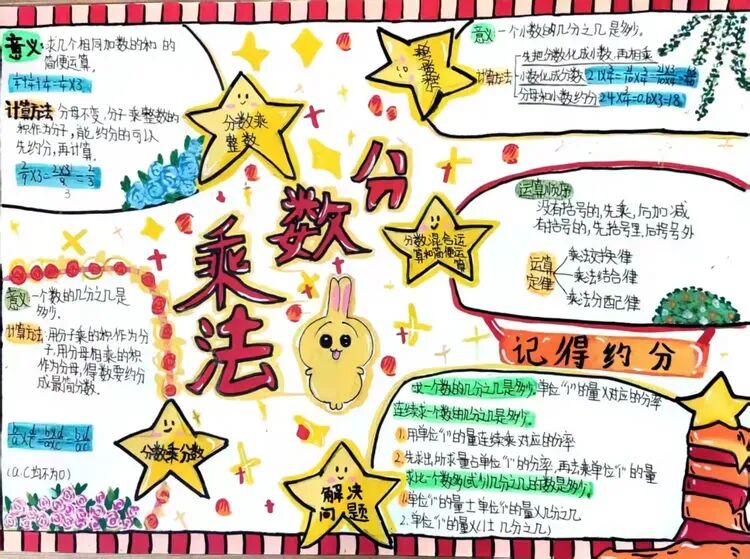 意义:求几个相同加数的和的
简便运算。
计算方法:分母不变,分子乘整数的
积作为分子,能约分的可以
先约分,再计算。
2/9×3=2×3/9=2/3
3
分数乘
整数
意义:一个小数的几分之几是多少。
计算方法
先把分数化成小数,再相乘
小数化成分数
分母和小数约分
分数乘法
分数混合运
算和简便运
算
运算顺序
没有括号的,先乘,后加减
有括号的,先括号里,后括号外
运算
定律
乘法交换律
乘法结合律
乘法分配律
记得约分
意义:一个数的几分之几是
多少。
计算方法:用分子乘的积作为分
子,用分母相乘的积
作为分母,得数要约分
成最简分数。
b/a×d/c=b×d/a×c=bd/ac
(a.c均不为0)
分数乘分数
解决
问题
求一个数的几分之几是多少。单位"1"的量×对应的分率
连续求一个数的几分之几是多少。
1.用单位"1"的量连续乘对应的分率
2.先求出所求量占单位"1"的分率,再去乘单位"1"的量
求比一个数多(或少)几分之几的数是多少。
1.单位"1"的量±单位"1"的量×几分之几
2.单位"1"的量×(1±几分之几)